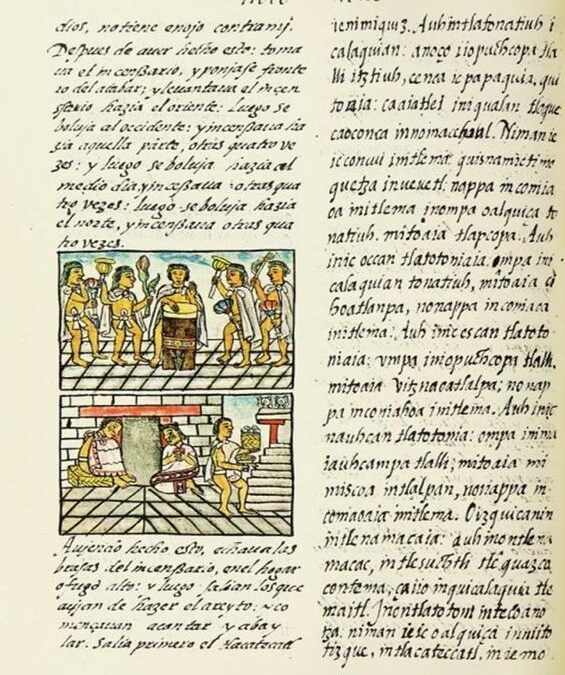 dios, no tiene enojo contra mj.
Despues de auer hecho esto: toma
ua el incensario, y ponjase fronte
ro del atabar; y leuantaua el incen
sario hazia el oriente: luego se
boluja al occidente: y incensaua ha
zia aquella parte, otras quatro ve
zes: y luego se boluja hazia el
medio dia, y incensaua otras qua
tro vezes: luego se boluja hazia
el norte, y incensaua otras qua
tro vezes.
Aujendo hecho esto, echaua las
brasas del incensario, en el hogar
o fogo alto: y luego salian los que
aujan de hazer el areyto: y co
mençauan a cantar y a bay
lar. Salia primero el tlacateccatl
ic nimiquiz. Auh in tlatonatiuh i
calaquian: anoço iiopuchcopa tla
lli itztiuh, cenca ic papaquia, qui
toaia: ca aiatlei in iqualan tloque
caoconca in nomaceoal. Niman ie
ic conui in itlema: quisnamictimo
quetza in ueuetl: nappa in comia
oa in itlema in ompa oalquiça to
natiuh. mitoaia tlapcopa. Auh
inic occan tlatotoniaia. ompa in i
calaquian tonatiuh, mitoaia ci
hoatlanpa, no nappa in comaoa
in itlema: Auh inic escan tlatoto
niaia: vmpa in iopuchcopa tlalli.
mitoaia vitznaoatlalpa; no nap
pa in comiahoa in itlema. Auh inic
nauhcan tlatotonia: ompa in ima
iauhcampa tlalli; mitoaia mi
miscoa intlalpan, no nappa in
comaoaia in itlema. O izquicanin
in tlenamacaia: auh in ontlena
macac, in tlesuchtli tlequazco
contema, ca iio in quicalaquia tle
maitl. In ontlatoton in teoano
tza: niman ie ic oalquiça in nito
tizque, in tlacateccatl, in ie mo